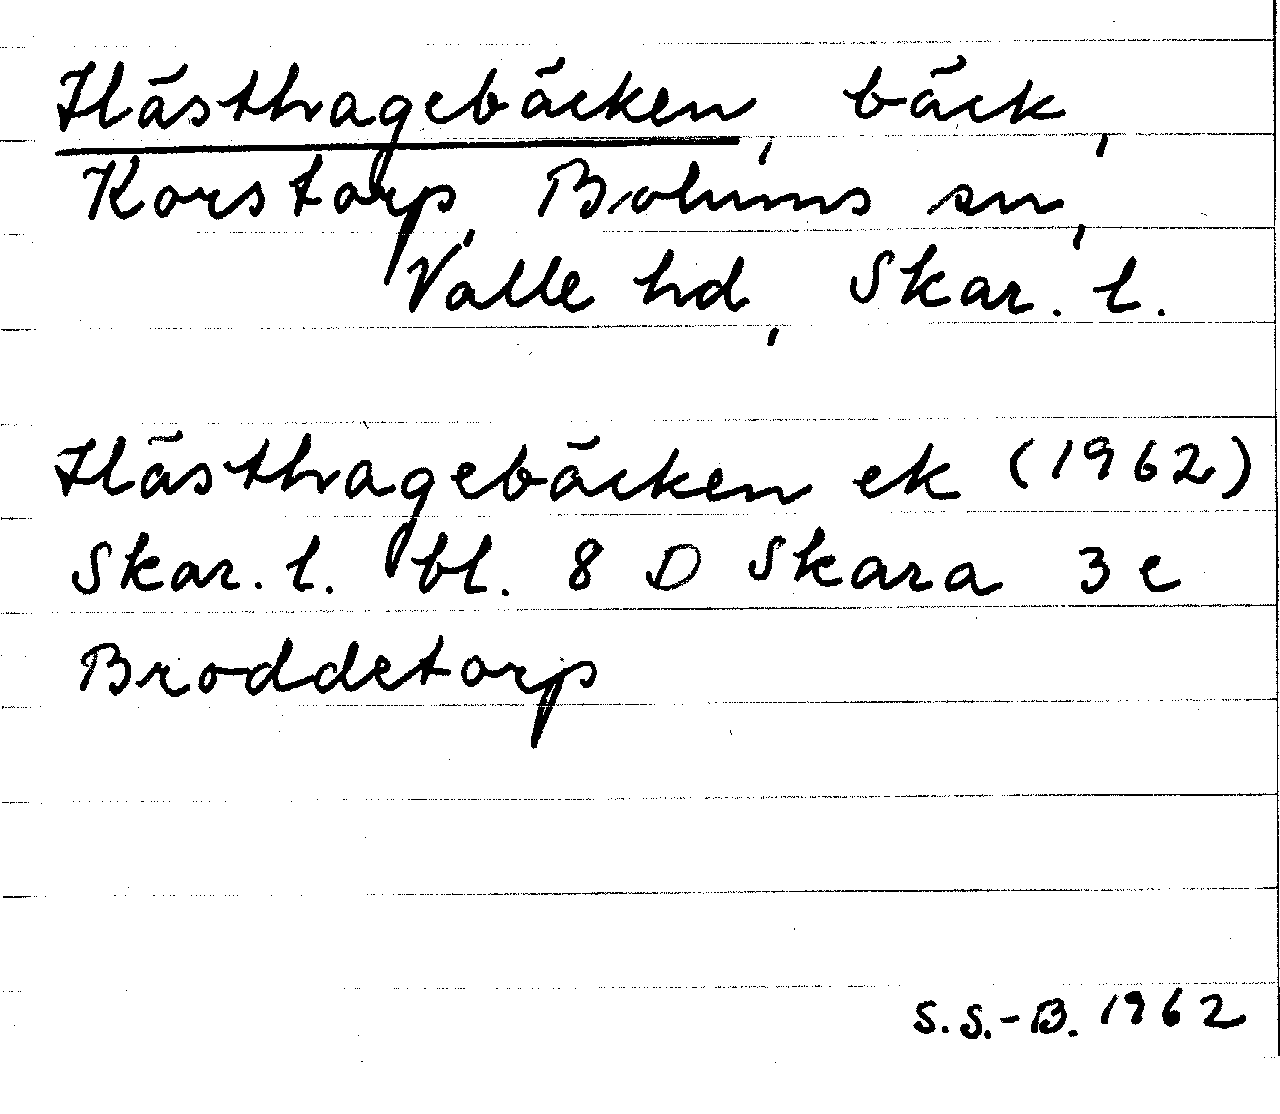 Hästhagebäcken, bäck,
Korstorp, Bolums sn,
Valle hd, Skar. l.
Hästhagebäcken ek (1962)
Skar. l. bl. 8 D Skara 3 e
Broddetorp
S.S.-B. 1962